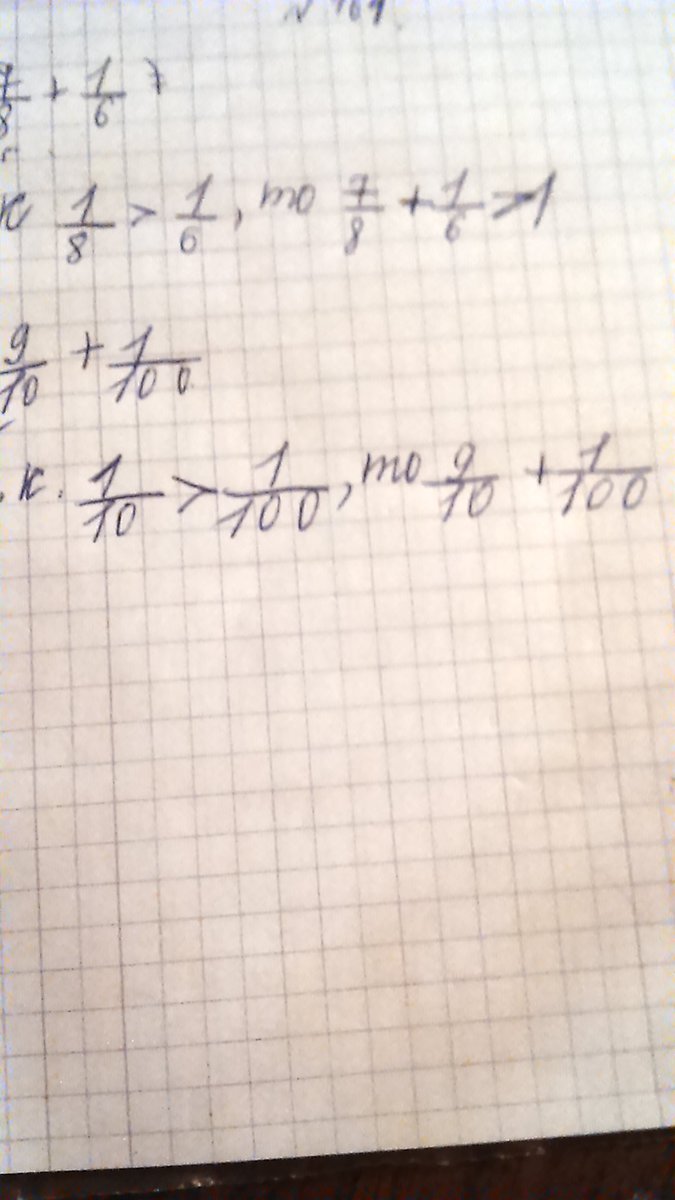 7/8 + 1/6
к 1/8 > 1/6, то 7/8 + 1/6 > 1
9/10 + 1/100
.к. 1/10 > 1/100, то 9/10 + 1/100